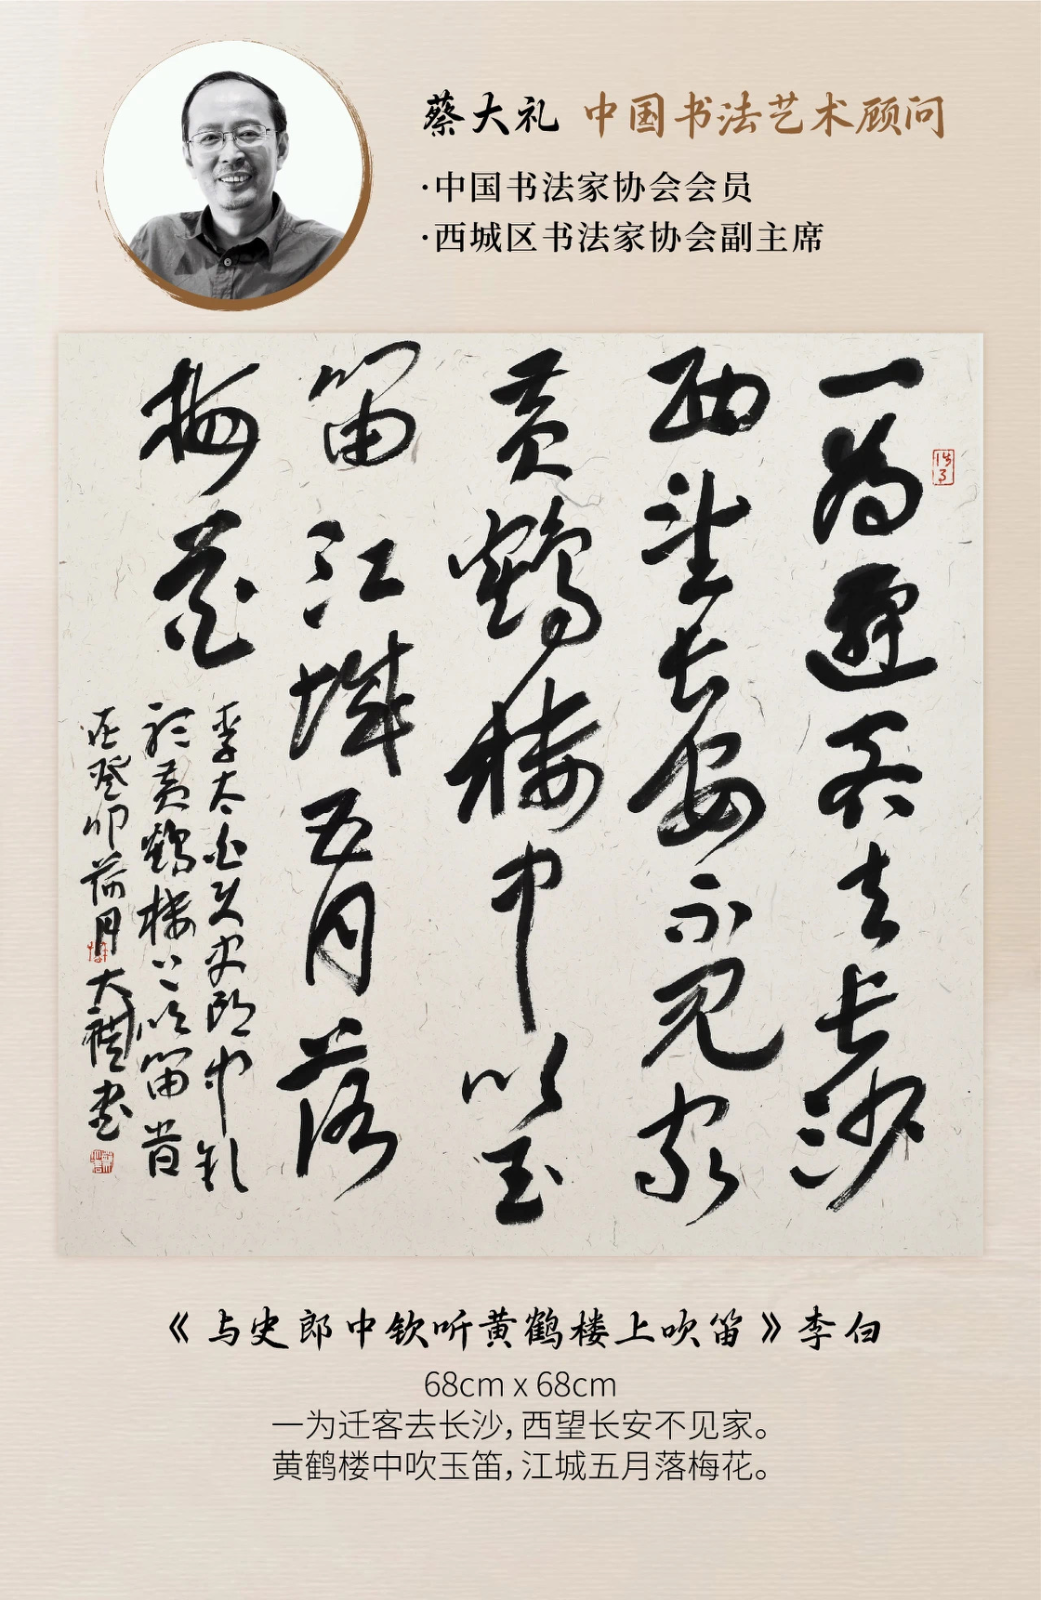 蔡大礼 中国书法艺术顾问
·中国书法家协会会员
·西城区书法家协会副主席
一为迁客去长沙
西望长安不见家
黄鹤楼中吹玉
笛江城五月落
梅花
李太白与史郎中钦
听黄鹤楼上吹笛 岂
在癸卯荷月大礼书
《与史郎中钦听黄鹤楼上吹笛》李白
68cm x 68cm
一为迁客去长沙，西望长安不见家。
黄鹤楼中吹玉笛，江城五月落梅花。